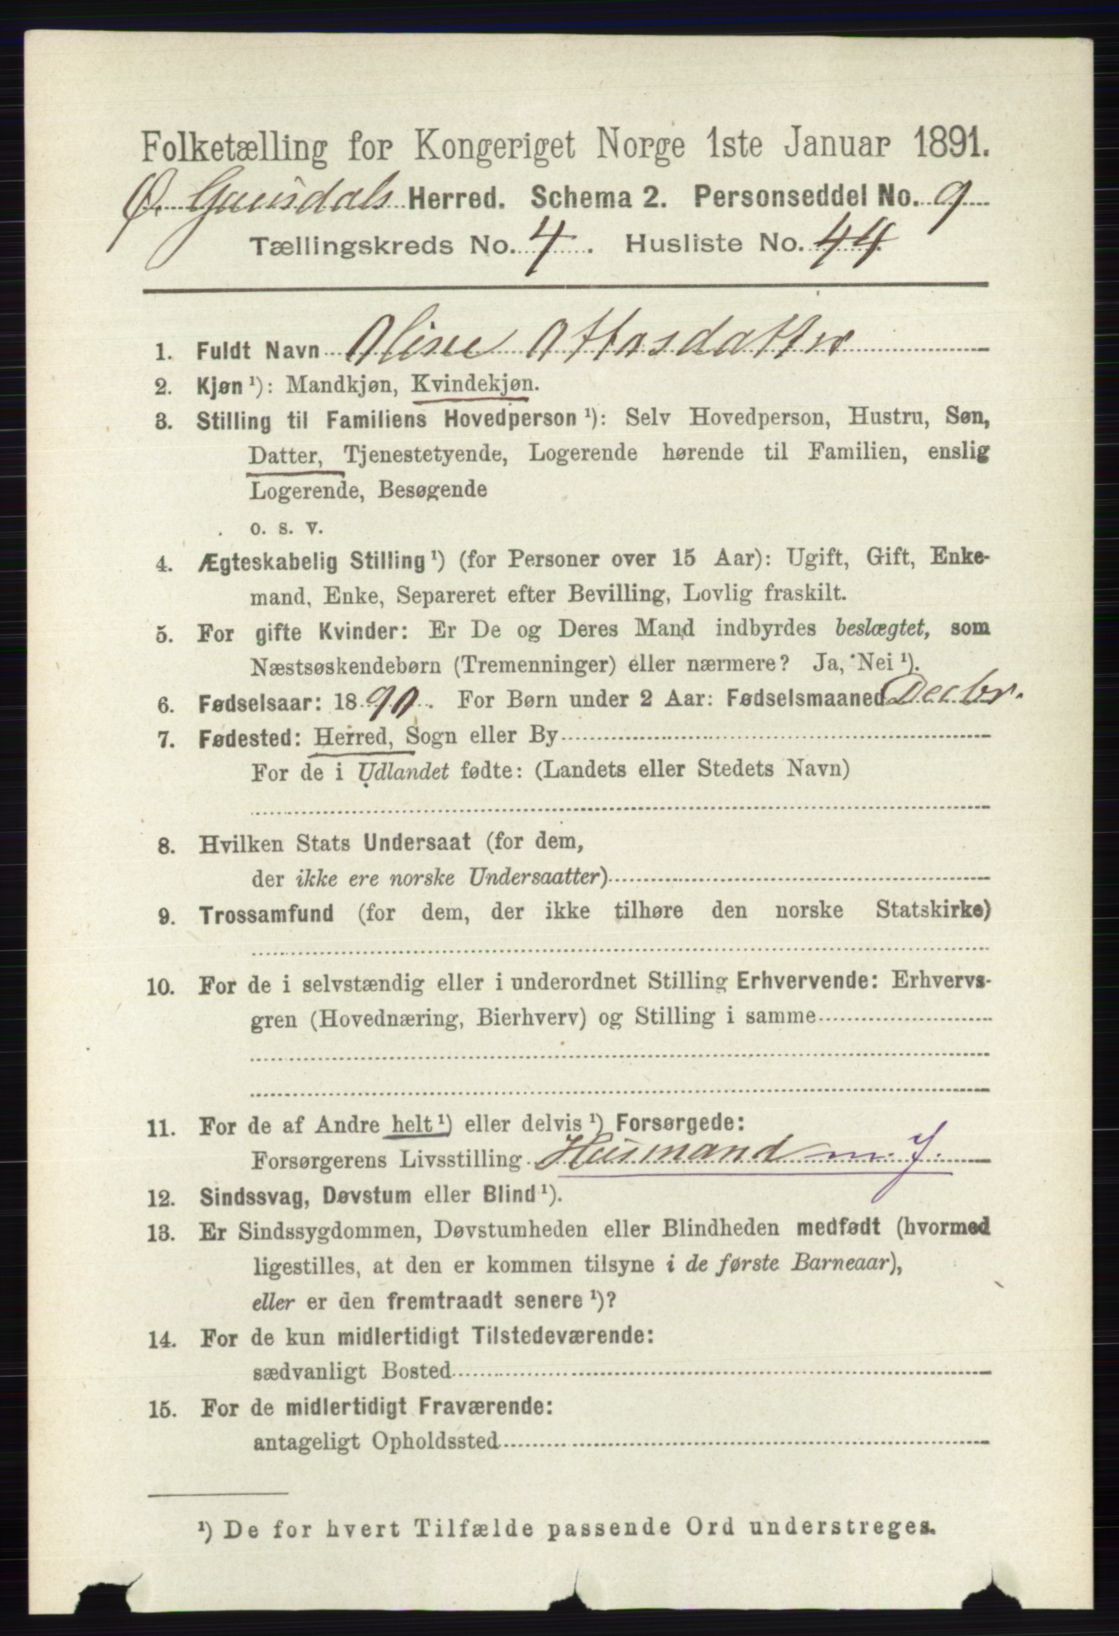 Folketælling for Kongeriget Norge 1ste Januar 1891.
Ø. Gausdals Herred. Schema 2. Personseddel No. 9
Tællingskreds No. 4. Husliste No. 44
1. Fuldt Navn Oline Ottosdatter
2. Kjøn ¹): Mandkjøn, Kvindekjøn.
3. Stilling til Familiens Hovedperson ¹): Selv Hovedperson, Hustru, Søn,
Datter, Tjenestetyende, Logerende hørende til Familien, enslig
Logerende, Besøgende
o. s. v.
4. Ægteskabelig Stilling ¹) (for Personer over 15 Aar): Ugift, Gift, Enke-
mand, Enke, Separeret efter Bevilling, Lovlig fraskilt.
5. For gifte Kvinder: Er De og Deres Mand indbyrdes beslægtet, som
Næstsøskendebørn (Tremenninger) eller nærmere? Ja, Nei ¹).
6. Fødselsaar: 1890. For Børn under 2 Aar: Fødselsmaaned Decbr.
7. Fødested: Herred, Sogn eller By
For de i Udlandet fødte: (Landets eller Stedets Navn)
8. Hvilken Stats Undersaat (for dem,
der ikke ere norske Undersaatter)
9. Trossamfund (for dem, der ikke tilhøre den norske Statskirke)
10. For de i selvstændig eller i underordnet Stilling Erhvervende: Erhvervs-
gren (Hovednæring, Bierhverv) og Stilling i samme
11. For de af Andre helt ¹) eller delvis ¹) Forsørgede:
Forsørgerens Livsstilling Husmand m. J.
12. Sindssvag, Døvstum eller Blind ¹).
13. Er Sindssygdommen, Døvstumheden eller Blindheden medfødt (hvormed
ligestilles, at den er kommen tilsyne i de første Barneaar),
eller er den fremtraadt senere ¹)?
14. For de kun midlertidigt Tilstedeværende:
sædvanligt Bosted
15. For de midlertidigt Fraværende:
antageligt Opholdssted
¹) De for hvert Tilfælde passende Ord understreges.